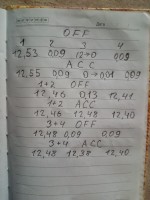 OFF
1 2 3 4
12,53 0,09 12→0 0,09
ACC
12,55 0,09 0→0,01 0,09
1+2 OFF
12,46 0,13 12,41
1+2 ACC
12,46 12,48 12,40
3+4 OFF
12,48 0,09 0,09
3+4 ACC
12,48 12,38 12,40